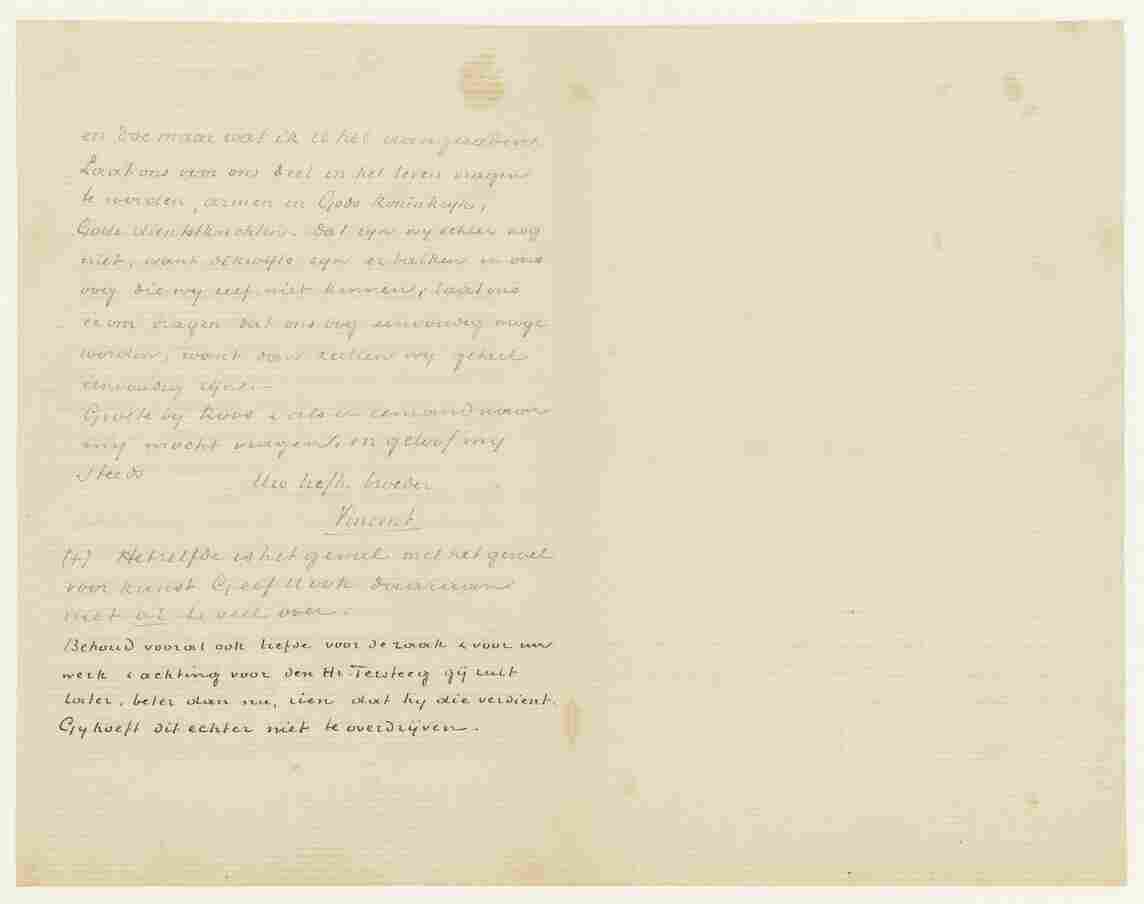 en doe maar wat ik U heb aangeraden.
Laat ons voor ons deel in het leven vragen
te worden, armen in Gods koninkrijk,
Gods dienstknechten. Dat zyn wy echter nog
niet, want dikwijls zyn er balken in ons
oog die wy zelf niet kennen, laat ons
er om vragen dat ons oog eenvoudig moge
worden, want dan zullen wy geheel
eenvoudig zijn.—
Groete by Roos & als er iemand naar
my mocht vragen, en geloof my
steeds
Uw liefh. broeder
Vincent
Hetzelfde is het geval met het gevoel
voor kunst Geef U ook daaraan
niet al te veel over.
Behoud vooral ook liefde voor de zaak & voor uw
werk & achting voor den Hr Tersteeg gij zult
later, beter dan nu, zien dat hy die verdient.
Gy hoeft dit echter niet te overdrijven.